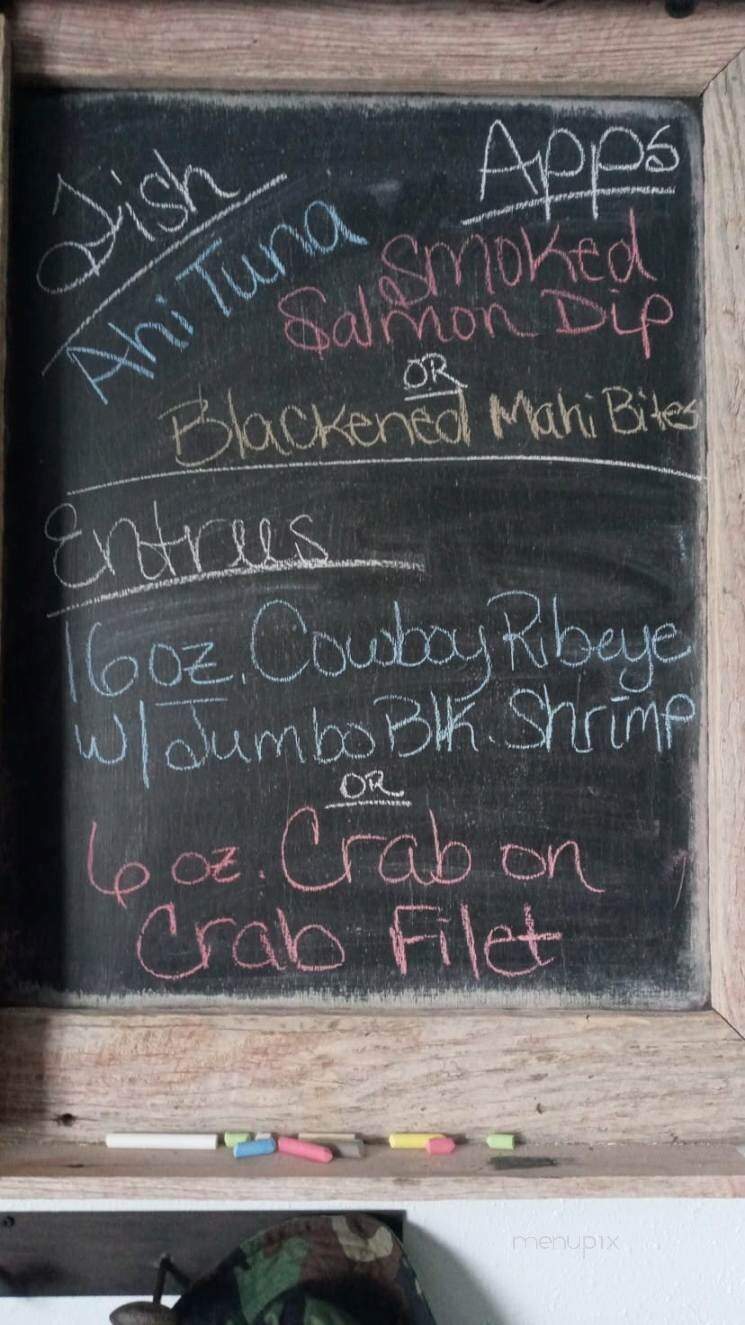 Fish
Ahi Tuna
Apps
Smoked
Salmon Dip
OR
Blackened Mahi Bites
Entrees
16 oz. Cowboy Ribeye
w/ Jumbo Blk. Shrimp
OR
6 oz. Crab on
Crab Filet
menupix